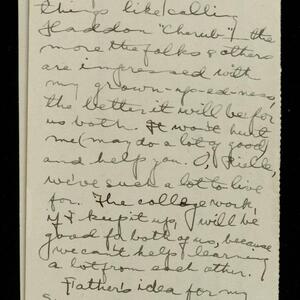 things like calling
Haddon "Cherub" – the
more the folks & others
are impressed with
my grown-up-ed-ness,
the better it will be for
us both. It won't hurt
me (may do a lot of good)
and help you. O,
we've such a lot to live
for. The college work,
if I keep it up, will be
good for both of us, because
we can't help learning
a lot from each other.
Father's idea for my